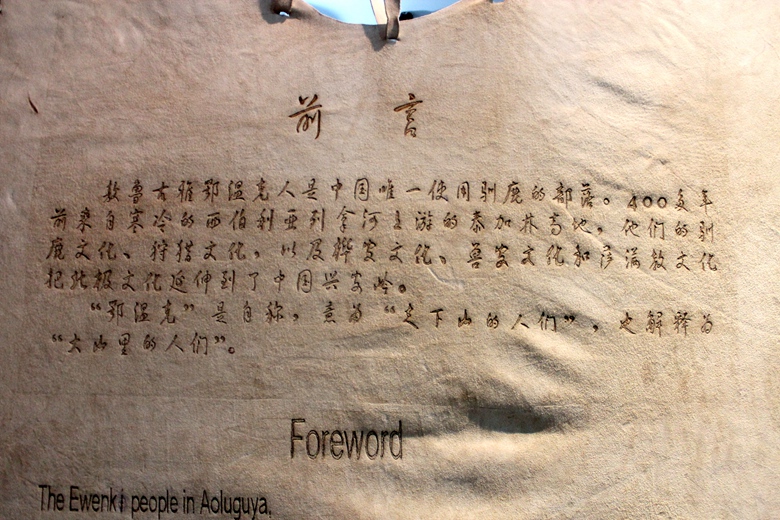 前言
敖鲁古雅鄂温克人是中国唯一使用驯鹿的部落。400多年
前来自寒冷的西伯利亚列拿河上游的泰加林高地，他们的驯
鹿文化、狩猎文化，以及桦皮文化、兽皮文化和萨满教文化
把北极文化延伸到了中国兴安岭。
“鄂温克”是自称，意为“走下山的人们”，也解释为
“大山里的人们”。
Foreword
The Ewenki people in Aoluguya,